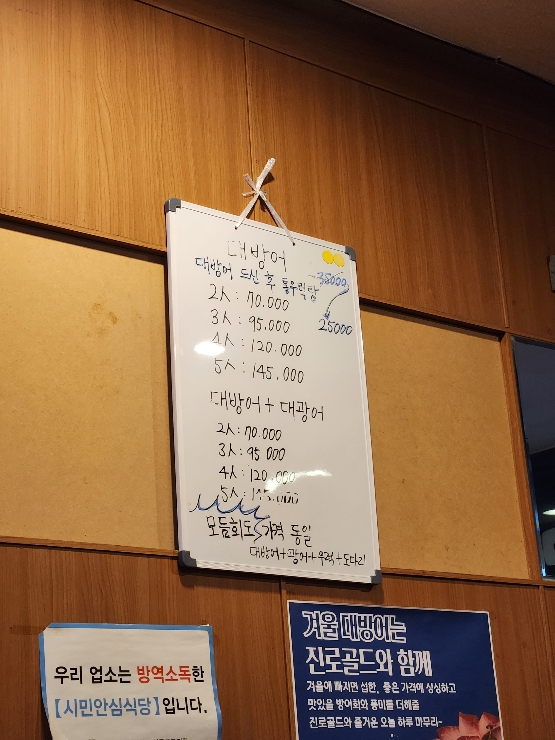 대방어
대방어 드신 후 통우럭탕 35000
25000
2人: 70.000
3人: 95.000
4人: 120.000
5人: 145.000
대방어 + 대광어
2人: 70.000
3人: 95 000
4人: 120.000
5人: 145.000
모듬회도 가격 동일
대방어+광어+우럭+도다리
우리 업소는 방역소독한
【시민안심식당】입니다.
겨울 대방어는
진로골드와 함께
겨울에 빠지면 섭한, 좋은 가격에 싱싱하고
맛있을 방어회와 풍미를 더해줄
진로골드와 즐거운 오늘 하루 마무리~